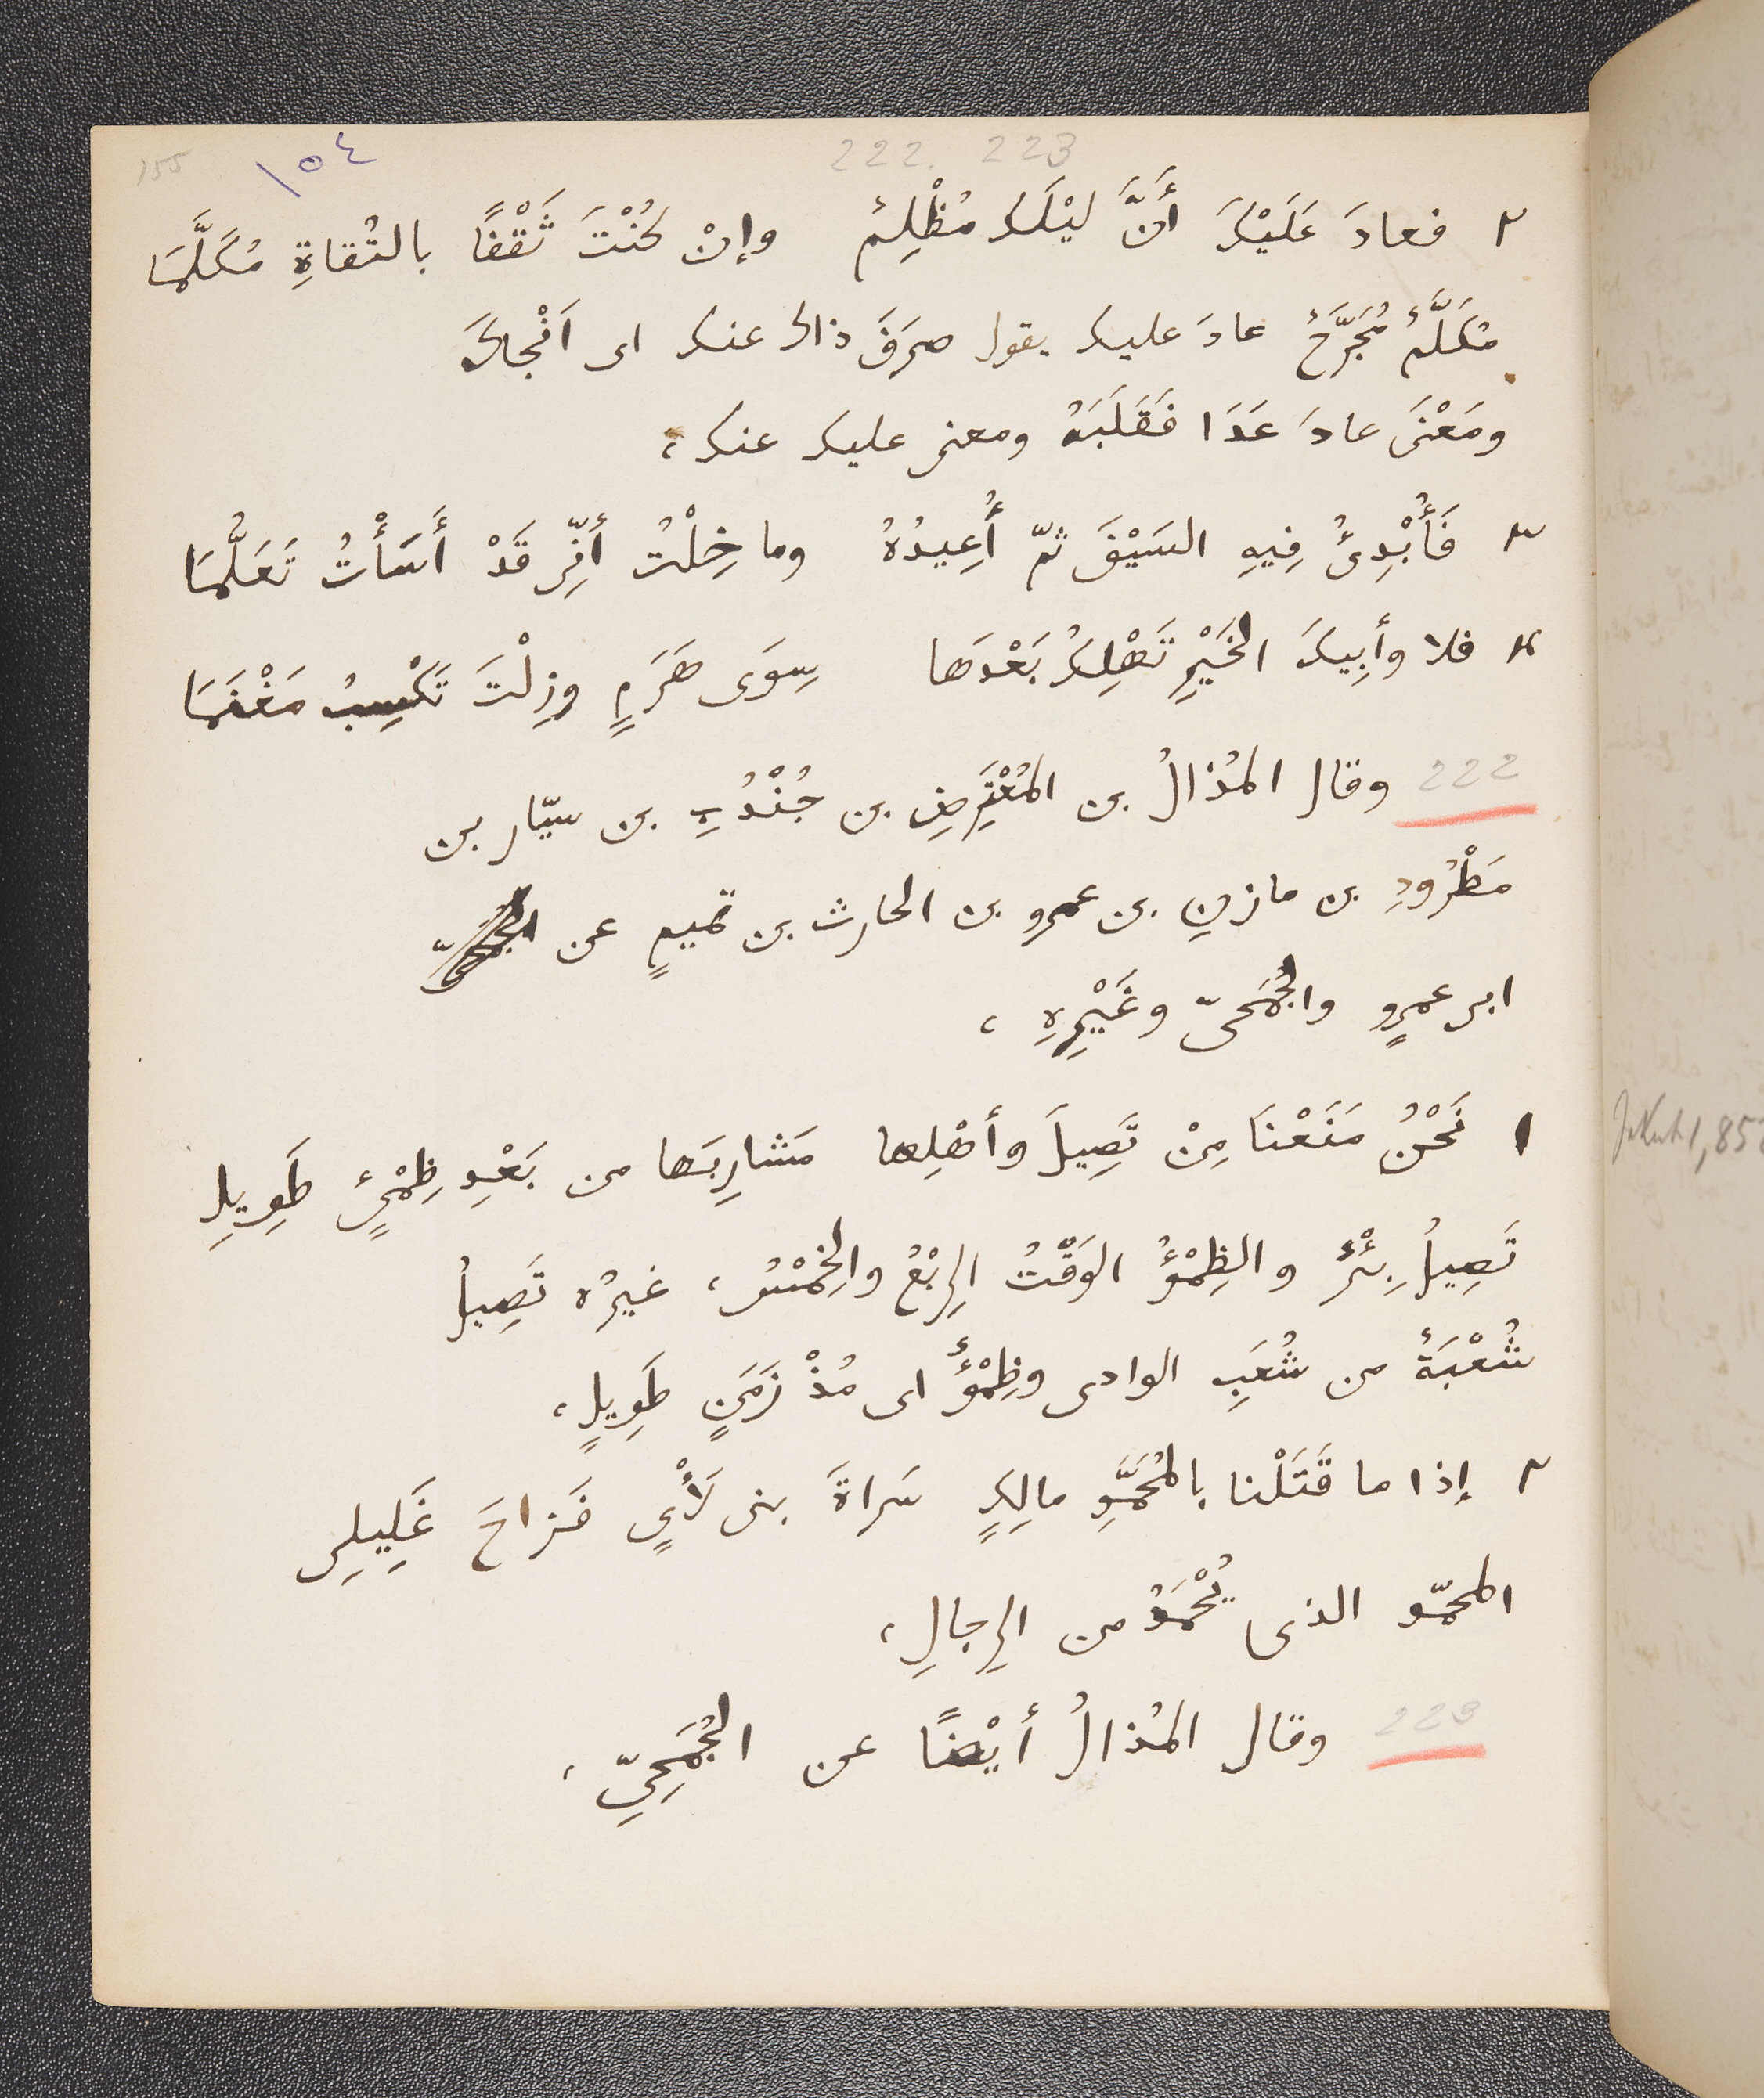 155 ١٥٤ 222. 223
٢ فعادَ عَلَيْكَ أَنَّ لَيْلَكَ مُظْلِمٌ وإنْ كُنْتَ ثَقْفًا بالتُقاةِ مُكَلَّمَا
مُكَلَّمٌ مُجَرَّحٌ عادَ عليك يقول صَرَفَ ذاك عنك اى اَنْجاكَ
ومَعْنَى عادَ عَدَا فَقَلَبَهُ ومعنى عليك عنك،
٣ فَأُبْدِئُ فِيهِ السَيْفَ ثمّ أُعِيدُهُ وما خِلْتُ أنِّى قَدْ أَسَأْتُ تَعَلُّمَا
٤ فلا وأبِيكَ الخَيْرِ تَهْلِكُ بَعْدَها سِوَى هَرَمٍ وزِلْتَ تَكْسِبُ مَغْنَمَا
222 وقال المُذالُ بن المُعْتَرِضِ بن جُنْدُبِ بن سيّار بن
مَطْرُودِ بن مازنِ بن عمرو بن الحارث بن تميمٍ عن الجمحىّ
ابى عمرٍو والجُمَحىّ وغَيْرِهِ،
١ نَحْنُ مَنَعْنَا مِنْ تَصِيلَ وأهْلِها مَشارِبَها من بَعْدِ ظِمْىءٍ طَوِيلِ
Jakut 1, 85
تَصِيلُ بِئْرٌ والظِمْؤُ الوَقْتُ الرِبْعُ والخِمْسُ، غيرُه تَصِيلُ
شُعْبَةٌ من شُعَبِ الوادى وظِمْؤٌ اى مُذْ زَمَنٍ طَوِيلٍ،
٢ إذا ما قَتَلْنا بالمُحَمَّدِ مالِكٍ سَراةَ بنى لَأْىٍ فَزاحَ غَلِيلِى
المحمّد الذى يُحْمَدُ من الرِجالِ،
223 وقال المُذالُ أيْضًا عن الجُمَحِىِّ،